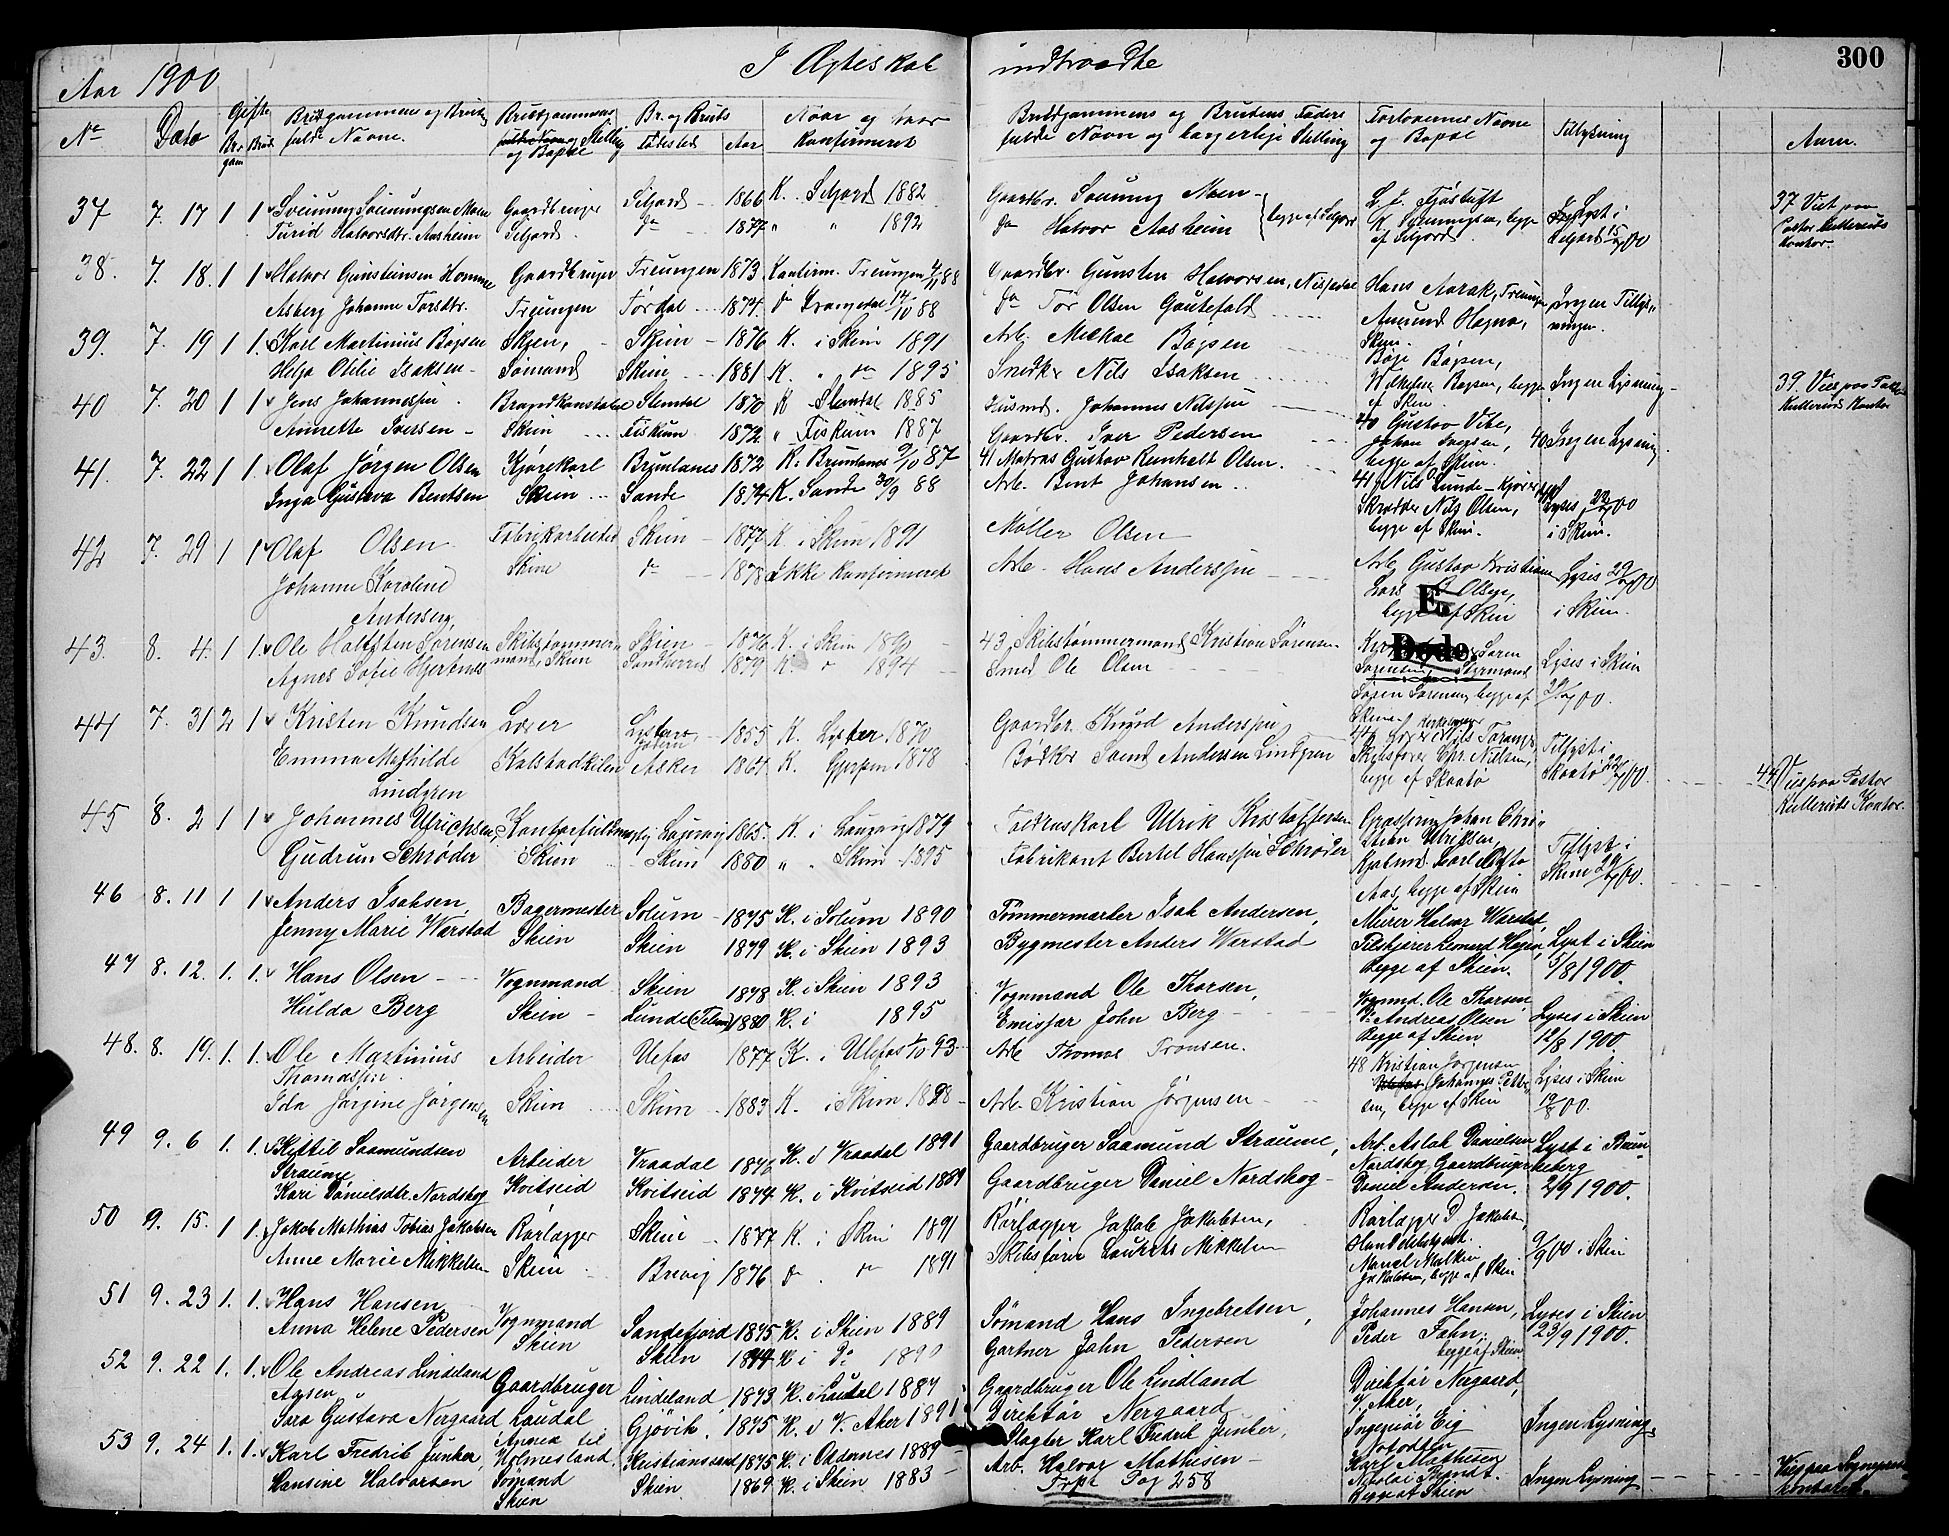 300
Aar 1900
I Ægteskab indtraadte
No Dato Gifte Br.gom Brud Brudgommens og Brudens fulde Navne. Brudgommens Stilling og Bopæl Br. og Bruds Fødested Aar Naar og hvor Konfirmeret Brudgommens og Brudens Faders fulde Navn og borgerlige Stilling Forlovernes Navne og Bopæl Tillysning Anm.
37 7. 17 1 1 Sveinung Sveinungsen Moen Gaardbruger Seljord 1866 K. Seljord 1882 Gaardbr. Sveinung Moen
Turid Halvorsdtr. Aasheim Seljord do 1877 " " 1892 do Halvor Aasheim begge af Seljord
begge af Seljord Lyst i Seljord 15/7 00
37 Viet paa Pastor Kontor.
38. 7. 18. 1 1 Halvor Gunsteinsen Homme Gaardbruger Treungen 1873 Konfirm. Treungen 88 Gaardbr. Gunsten Halvorsen, Nissedal Hans Aarak, Treungen
Asberg Johanne Torsdtr. Treungen Tørdal 1874. do Drangedal 14/10 88 do Tor Olsen Gautefald Amund Hagna, Skien. Ingen Tillysningen.
39. 7. 19 1 1. Karl Martinius Bøgsen Skjen, Skien 1876 K. i Skien 1891 Arb. Mickael Bøgsen
Helga Otilie Isaksen Sømand Skien 1881 K. " do 1895 Snedker Nils Isaksen begge af Skien Ingen Lysning
39. Vies paa Kontor
40 7. 20 1 1 Jens Johannesen Brandkonstabel Slemdal 1870 K Slemdal 1885 Husmd. Johannes Nilssen 40 Gustav Vibe,
Annette Iversen Skien Fiskum 1872 " Fiskum 1887 Gaardbr. Iver Pedersen begge af Skien. 40 Ingen Lysning
41. 7. 22 1 1. Olaf Jørgen Olsen Kjørekarl Brunlanes 1872 K. Brunlanes 9/10 87 41 Matros Gustav Reinhalt Olsen. 41 Nils Lunde
Inga Gustava Bentsen Skien Sande 1874 K. Sande 30/9 88 Arb. Bent Johansen Skrædder Nils Olsen, begge af Skien. Lyses, 22/7 00 i Skien.
42 7. 29 1 1 Olaf Olsen Fabrikarbeider Skien 1877 K. i Skien 1891 Møller Olsen Arb. Gustav Kristian
Johanne Karoline Andersen, Skien do 1878 Ikke Konfirmeret Arb. Hans Anderssen Lars Olsen, begge af Skien Lyses 29/7 00 i Skien.
E.
Døde.
43. 8. 4. 1 1. Ole Halfsten Sørensen Skibstømmermand, Skien Skien 1876 K. i Skien 1890 43 Skibstømmermand Kristian Sørensen
Agnes Sofie Hjertnes Sandherred 1879 K. " 1894 Smed Ole Olsen Søren Sørensen, begge af Skien. Lyses i Skien
44 7. 31 2 1 Kristen Knudsen Lærer 1855 K. Lyster 1870 Gaardbr. Knud Anderssen
Emma Mathilde Lindgren Kalstadkilen Asker 1864 K. Gjerpen 1878 Bødker Svend Andersen Lindgren Skipsfører Chr. Nilsen, begge af Skaatø Tillyst i Skaatø 22/7 00.
44 Vies paa Pastor Kontor.
45 8. 2 1 1 Johannes Ulrichsen, Kontorfuldmægtig Laurvig 1865. K. i Laurvig 1879 Ulrik Kristoffersen Johan Christian Ulriksen,
Gudrun Schrøder Skien Skien 1880 " " Skien 1895 Fabrikant Bertel Hanssen Schrøder Aas, begge af Skien Tillyst i Skien 29/7 00.
46 8. 11 1 1 Anders Isaksen, Bagermester Solum 1875 K. i Solum 1890 Tømmermærker Isak Andersen, Murer Halvor Wærstad,
Jenny Marie Wærstad Skien Skien 1879 K. i Skien 1893 Bygmester Anders Værstad begge af Skien. Lyst i Skien 5/8 1900.
47 8. 12. 1. 1. Hans Olsen Vognmand Skien 1878 K. i Skien 1893 Vognmand Ole Thorsen, Vognmd. Ole Thorsen,
Hulda Berg Skien Lunde (Telem) 1880 K. i 1895 Emissær John Berg Andreas Olsen Begge af Skien Lyses i Skien 12/8 1900.
48. 8. 19. 1. 1. Ole Martinius Thomassen Arbeider Ulefos 1877 K. i Ulefos 1/10 93 Arb Thomas Tronsen. 48 Kristian Jørgensen
Ida Jørgine Jørgensen Skien Skien 1883 K. i Skien 1898 Arb. Kristian Jørgensen Johannes begge af Skien Lyses i Skien 19/8 00.
49 9. 6 1. 1. Kittil Saamundsen Straume Arbeider Vraadal 1876 K. i Vraadal 1891 Gaardbruger Saamund Straume, Arb. Aslak Danielsen Nordskog,
Kari Danielsdtr. Nordskog Kvitseid Kvitseid 1874 K. i Kvitseid 1889 Gaardbruger Daniel Nordskog Gaardbruger Daniel Andersen. Lyst i Brunkeberg 2/9 1900.
50 9. 15. 1 1. Jakob Mathias Tobias Jakobsen Rørlægger Skien 1877 K. i Skien 1891 Rørlægger Jakob Jakobsen, Rørlægger Jakobsen,
Anne Marie Mikkelsen Skien Brevig 1876 do. do 1891 Skibsfører Laurits Mikkelsen Jakobsen, begge af Skien 9/9 00 i Skien
51 9. 23 1. 1. Hans Hansen Vognmand Sandefjord 1875 K. i Skien 1889 Sømand Hans Ingebretsen, Johannes Hansen,
Anna Helene Pedersen Skien Skien K. i Do 1890 Gartner John Pedersen Peder Fahn. begge af Skien Lyses i Skien 23/9 1900.
52 9. 22 1. 1. Ole Andreas Lindeland Aasen Gaardbruger Lindeland 1873 K. i Laudal 1887 Gaardbruger Ole Lindland Direktør Nergaard, V. Aker,
Sara Gustava Nergaard Laudal Gjøvik. 1875 K. i V. Aker 1891 Direktør Nergaard Ingeniør Eig Notodden Ingen Lysning
Annex til Holmesland
53 9. 24 1. 1. Karl Fredrik Junker, Sømand Kristianssand 1875 K. i Oddernes 1889 Slagter Karl Fredrik Junker, Karl Mathisen
Hansine Halvorsen Skien Skien 1869 K. i Skien 1883 Arb. Halvor Mathisen Nikolai Begge af Skien Ingen Lysning
Vies paa kontoret.
Frpt Pag 258